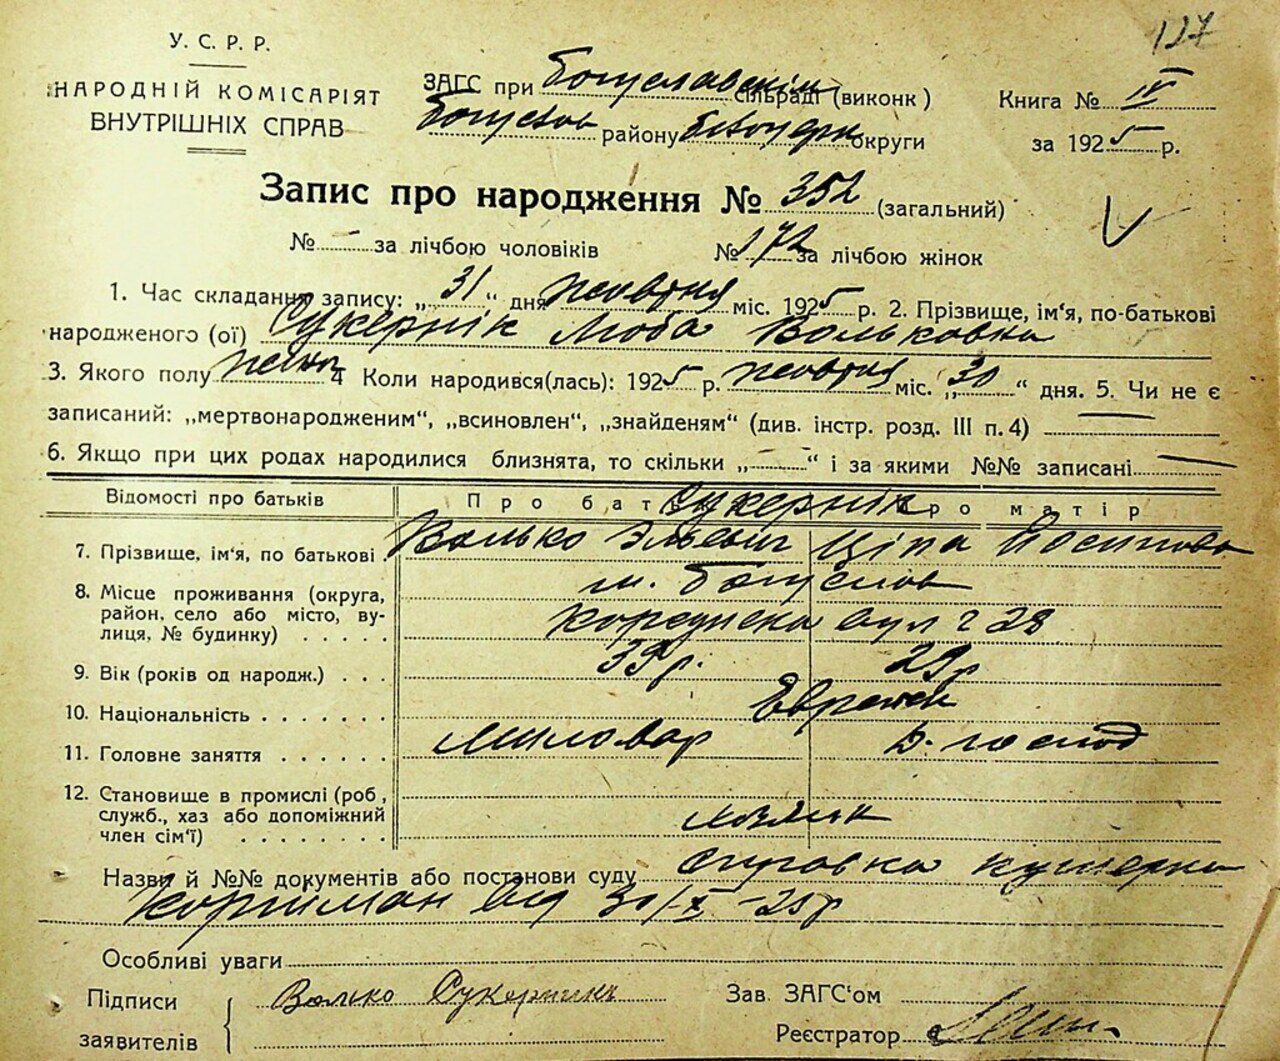 127
У. С. Р. Р.
НАРОДНІЙ КОМІСАРІЯТ
ВНУТРІШНІХ СПРАВ
ЗАГС при Богуславскім сільраді (виконк)
району округи
Книга № IV
за 1925 р.
Запис про народження № 352 (загальний)
№ - за лічбою чоловіків № 172 за лічбою жінок
1. Час складання запису: „31“ дня жовтня міс. 1925 р. 2. Прізвище, ім'я, по-батькові
народженого (ої) Сукернік Люба Вольковна
3. Якого полу жіноч 4 Коли народився(лась): 1925 р. жовтня міс. „30“ дня. 5. Чи не є
записаний: „мертвонародженим“, „всиновлен“, „знайденям“ (див. інстр. розд. III п. 4) —
6. Якщо при цих родах народилися близнята, то скільки „—“ і за якими №№ записані —
Відомості про батьків Про бат Про матір
Сукернік
7. Прізвище, ім'я, по батькові Волько Ельевич Ціпа Йосипова
8. Місце проживання (округа, район, село або місто, вулиця, № будинку) м. Богуслав
вул 28
9. Вік (років од народж.) 39 р. 29 р
10. Національність Евреї
11. Головне заняття Миловар Д. господ
12. Становище в промислі (роб., служб., хаз або допоміжний член сім'ї)
Назви й №№ документів або постанови суду справка
від 30/X-25р
Особливі уваги
Підписи заявителів Волько Сукерник
Зав. ЗАГС'ом
Реєстратор